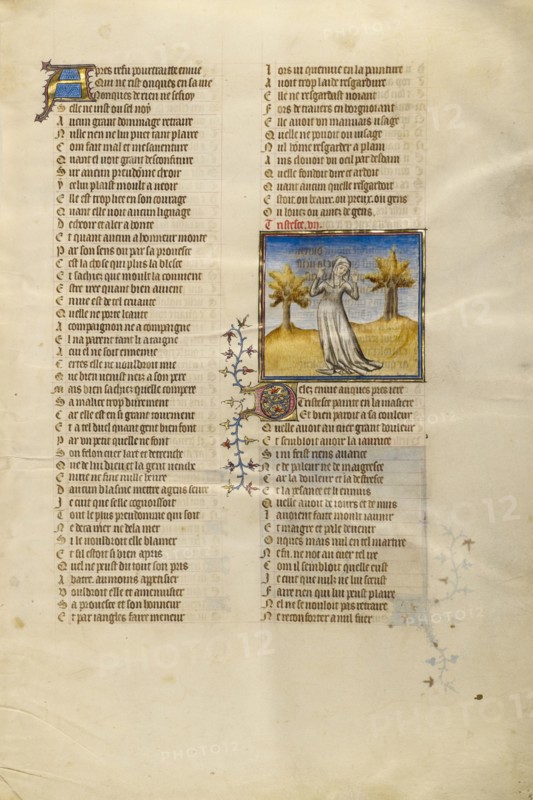 Apres refu pourtraitte envie
Qui ne rist onques en sa vie
Nonques de rien ne sesioy
Selle ne vist ou sel noy
Aucun grant dommage retraire
Nulle rien ne lui puet tant plaire
Com fait mal et mesaventure
Quant el voit grant desconfiture
Sur aucun preudome cheoir
Ycelui plaist moult a veoir
Elle est trop liee en son courage
Quant elle voit aucun lignage
Decheoir et aler a honte
Et quant aucun a honneur monte
Par son sens ou par sa prouesce
Cest la chose qui plus la blesce
Et sachiez que moult la couvient
Estre iree quant bien avient
Envie est de tel cruaute
Quelle ne porte leaute
A compaignon ne a compaigne
El na parent tant li ataigne
A cui el ne soit ennemie
Certes elle ne vouldroit mie
Que bien venist nez a son pere
Mais bien sachiez quelle compere
Sa malice trop durement
Car elle est en si grant tourment
Et a tel duel quant gent bien font
Par un petit quelle ne font
Son felon cuer lart et detrenche
Qui de li dieu et la gent venche
Envie ne fine nulle heure
Daucun blasme mettre a gens seure
Je cuit que selle cognoissoit
Tout le plus preudomme qui soit
Ne deca mer ne dela mer
Si le vouldroit elle blamer
Et sil estoit si bien apris
Quel ne peust du tout son pris
Abatre au moins appetisier
Vouldroit elle et amenuisier
Sa prouesce et son honneur
Et par iangles faire meneur
Lors vi quenvie en la painture
Avoit trop laide resgardure
Elle ne resgardist noiant
Fors de travers en borgnoiant
Elle avoit un mauvais usage
Quelle ne pouoit ou visage
Nul home resgarder a plain
Ains clouoit un oeil par desdain
Quelle fondoit dire et ardoit
Quant aucun quelle resgardoit
Estoit ou beaux ou preux ou gens
Ou louez ou amez de gens
Tristesce
Delez envie auques pres iere
Tristesce painte en la masiere
Et bien paroit a sa couleur
Quelle avoit au cuer grant douleur
Et sembloit avoir la iaunice
Si ni feist riens avarice
Ne de paleur ne de maigresce
Car la douleur et la destresce
Et la pesance et li ennuis
Quelle avoit de iours et de nuis
Lavoient faite moult iaunir
Et maigre et pale devenir
Onques mais nul en tel martire
Ne fu ne not au cuer tel ire
Com il sembloit quelle eust
Je cuit que nulz ne lui sceust
Faire rien qui lui peust plaire
Nel ne se vouloit pas retraire
Ne reconforter a nul fuer
PHOTO12